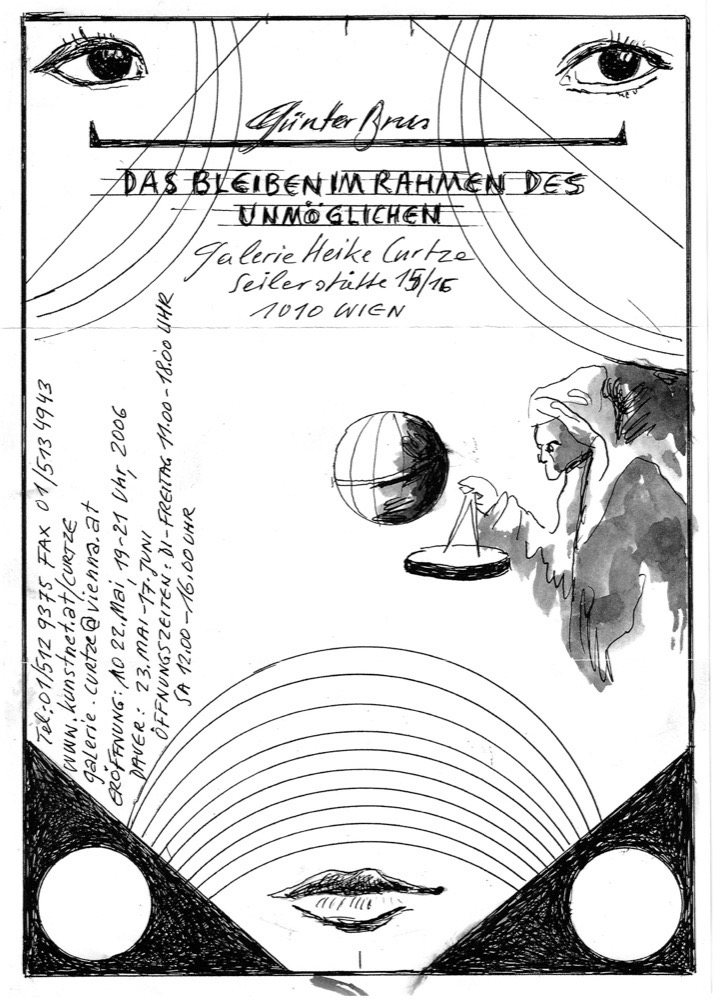 Günter Brus
DAS BLEIBEN IM RAHMEN DES
UNMÖGLICHEN
galerie Heike Curtze
Seilerstätte 15/16
1010 WIEN
Tel: 01/512 9375 FAX 01/513 4943
www.kunstnet.at/CURTZE
galerie.curtze@vienna.at
ERÖFFNUNG: MO 22. Mai, 19-21 Uhr, 2006
DAUER: 23. MAI-17. JUNI
ÖFFNUNGSZEITEN: DI-FREITAG 11.00-18.00 UHR
SA 12.00-16.00 UHR